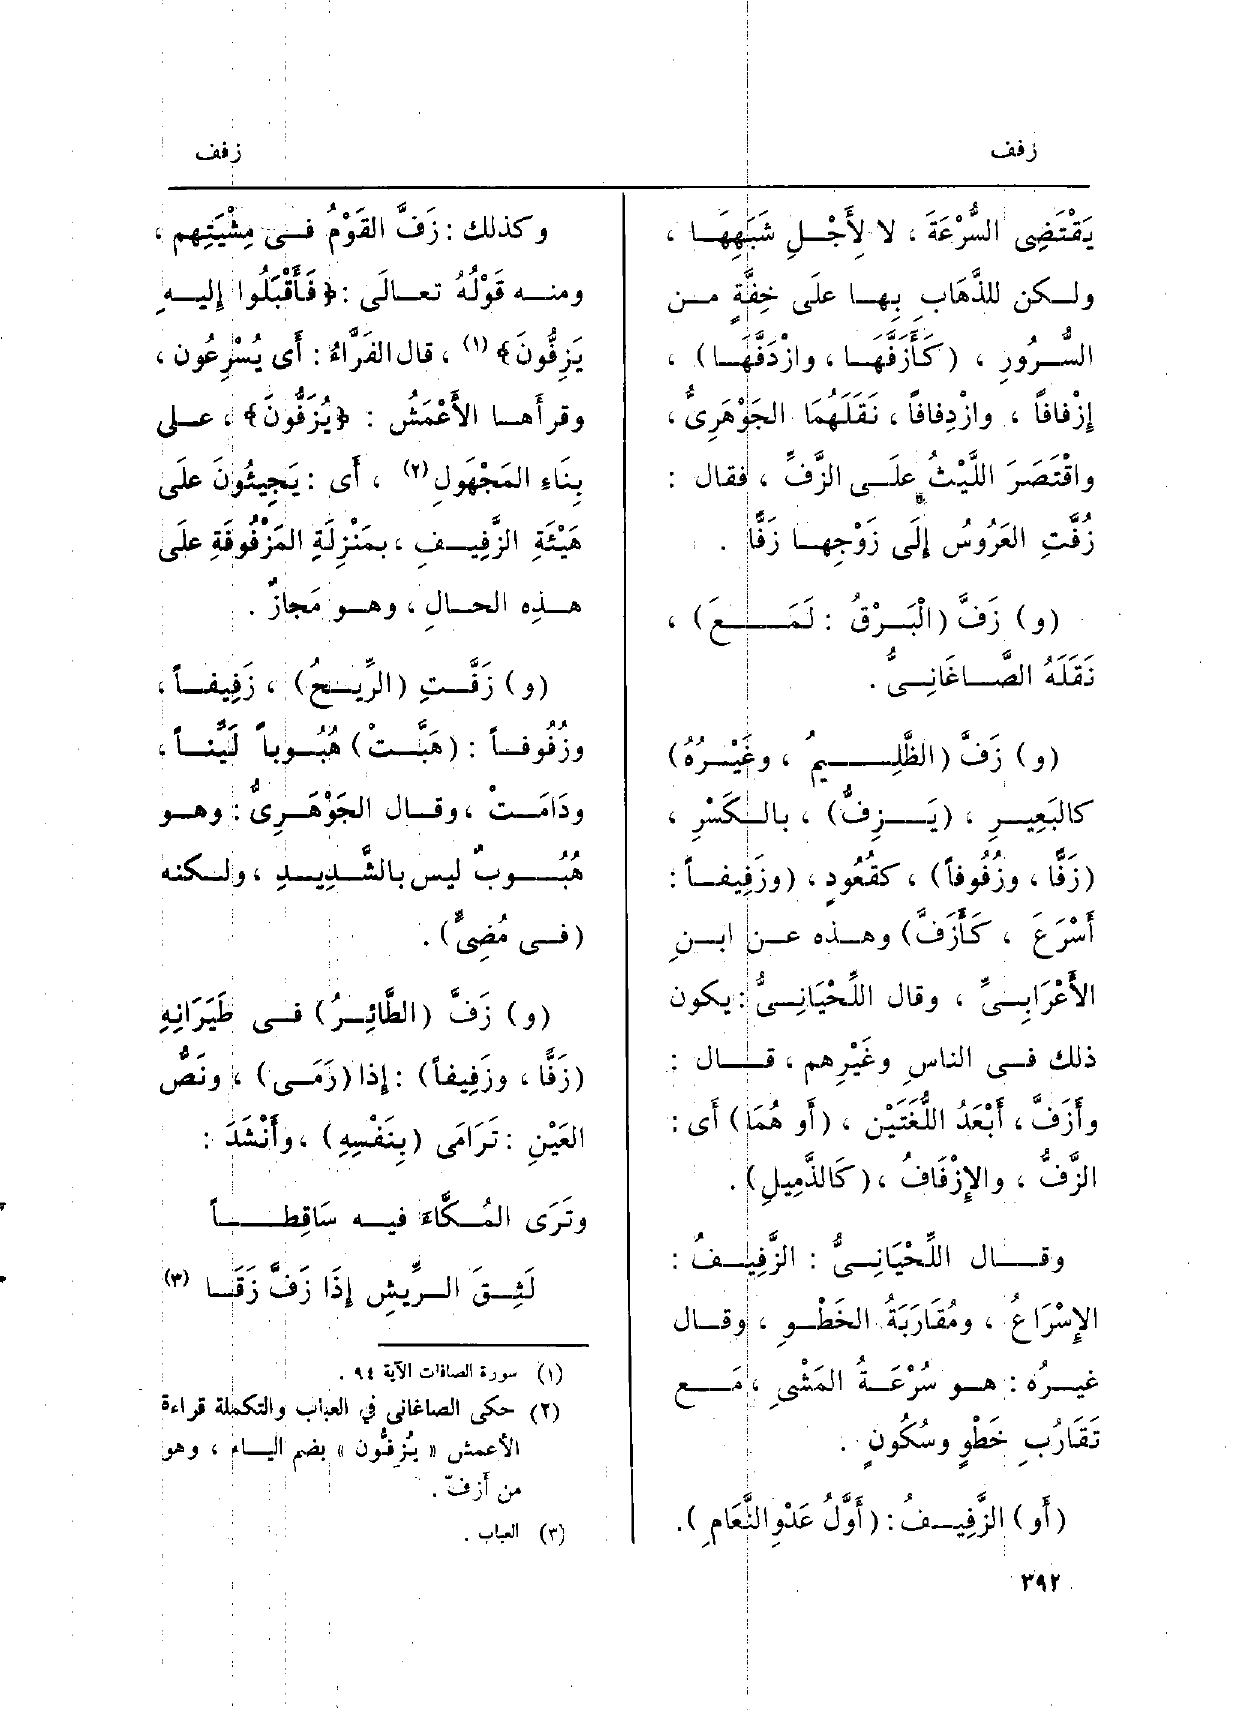 زفف
زفف
يَقْتَضِى السُّرْعَةَ ، لا لِأَجْلِ شَبَهِهَا ،
ولكن للذَّهَابِ بِها علَى خِفَّةٍ من
السُّرُورِ ، (كَأَزَفَّهَا ، وازْدَفَّهَا) ،
إِزْفافاً ، وازْدِفافاً ، نَقَلَهُمَا الجَوْهَرِىُّ ،
واقْتَصَرَ اللَّيْثُ علَى الزَّفِّ ، فقال :
زُفَّتِ العَرُوسُ إِلَى زَوْجِها زَفًّا .
(و) زَفَّ (الْبَرْقُ : لَمَعَ) ،
نَقَلَهُ الصَّاغَانِىُّ .
(و) زَفَّ (الظَّلِيمُ ، وغَيْرُهُ)
كالبَعِيرِ ، (يَزِفُّ) ، بالكَسْرِ ،
(زَفًّا ، وزُفُوفاً) ، كقُعُودٍ ، (وزَفِيفاً :
أَسْرَعَ ، كَأَزَفَّ) وهذه عن ابنِ
الأَعْرَابِىِّ ، وقال اللِّحْيَانِىُّ : يكون
ذلك فى الناسِ وغَيْرِهم ، قال :
وأَزَفَّ ، أَبْعَدُ اللُّغَتَيْنِ ، (أَو هُمَا) أَى :
الزَّفُّ ، والإِزْفَافُ ، (كَالذَّمِيلِ) .
وقال اللِّحْيَانِىُّ : الزَّفِيفُ :
الإِسْرَاعُ ، ومُقَارَبَةُ الخَطْوِ ، وقال
غيرُه : هو سُرْعَةُ المَشْىِ ، مَع
تَقَارُبِ خَطْوٍ وسُكُونٍ .
(أَو) الزَّفِيفُ : (أَوَّلُ عَدْوِ النَّعَامِ ) .
وكذلك : زَفَّ القَوْمُ فى مِشْيَتِهم ،
ومنه قَوْلُهُ تعالَى : ﴿ فَأَقْبَلُوا إِليهِ
يَزِفُّونَ﴾ (١) ، قال الفَرَّاءُ : أَى يُسْرِعُون ،
وقرأها الأَعْمَشُ : ﴿يُزَفُّونَ﴾ ، على
بِنَاءِ المَجْهُولِ (٢) ، أَى : يَجِيئُونَ علَى
هَيْئَةِ الزَّفِيفِ ، بمَنْزِلَةِ المَزْفُوفَةِ علَى
هذِه الحالِ ، وهو مَجازٌ .
(و) زَفَّتِ (الرِّيحُ) ، زَفِيفاً ،
وزُفُوفاً : (هَبَّتْ) هُبُوباً لَيِّناً ،
ودَامَتْ ، وقال الجَوْهَرِىُّ : وهو
هُبُوبٌ ليس بالشَّدِيدِ ، ولكنه
(فى مُضِىٍّ) .
(و) زَفَّ (الطَّائِرُ) فى طَيَرَانِهِ
(زَفًّا ، وزَفِيفاً) : إذا (رَمَى) ، ونَصُّ
العَيْنِ : تَرَامَى (بِنَفْسِهِ) ، وأَنْشَدَ :
وتَرَى المُكَّاءَ فيه سَاقِطاً
لَثِقَ الرِّيشِ إِذَا زَفَّ زَقَا (٣)
(١) سورة الصافات الآية ٩٤ .
(٢) حكى الصاغانى في العباب والتكملة قراءة
الأعمش « يُزِفُّون » بضم الياء ، وهو
من أزفّ .
(٣) العباب .
٣٩٢